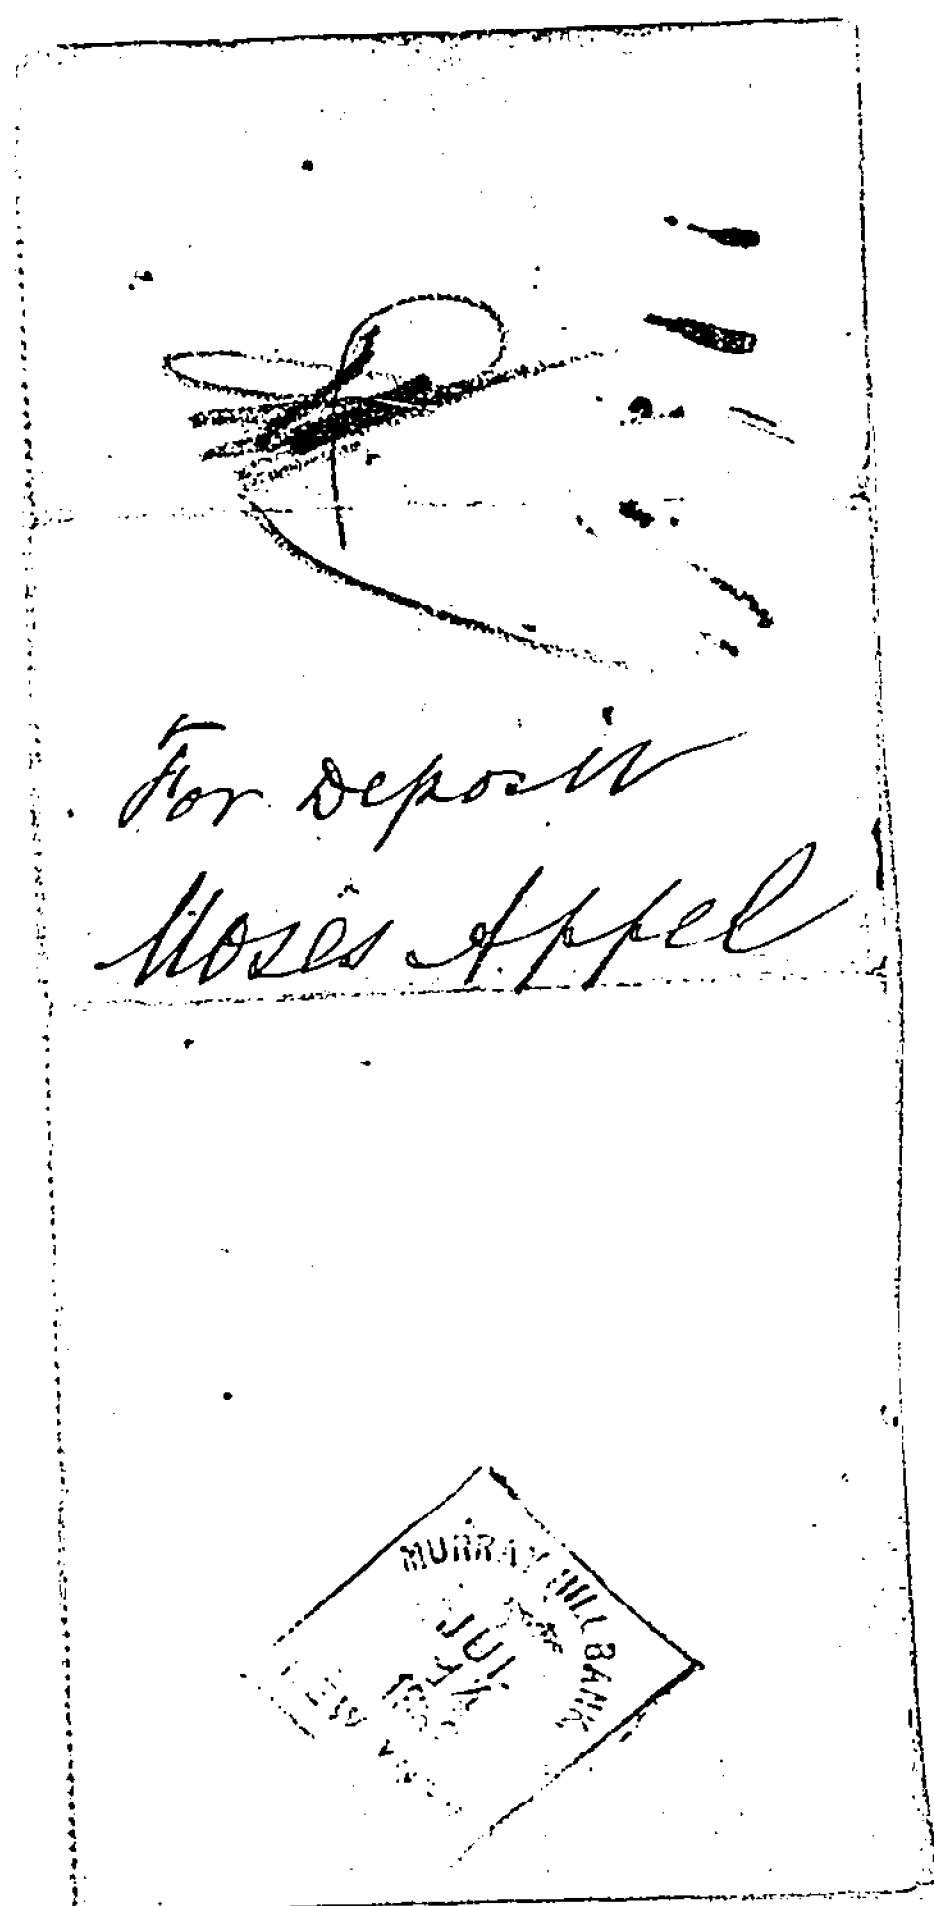 For Deposit
Moses Appel
MURRAY HILL BANK
JUL
NEW YORK